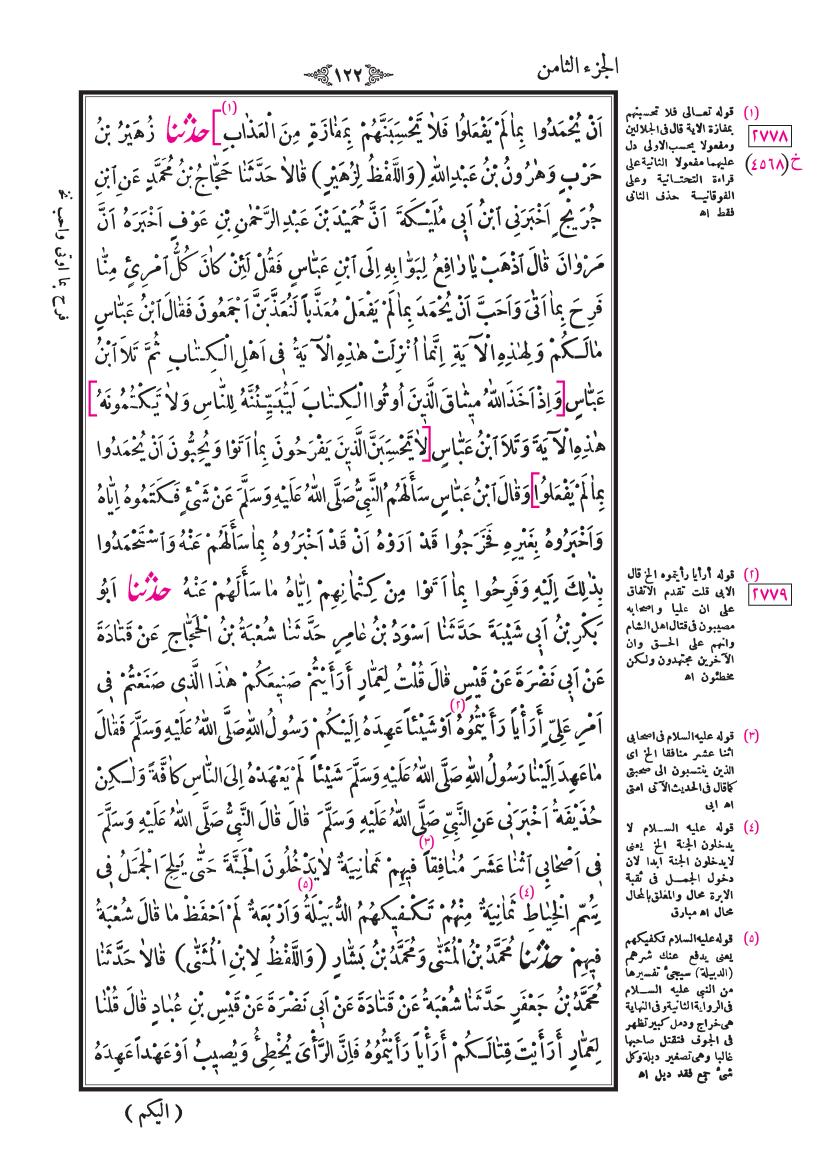 الجزء الثامن
١٢٢
اَنْ يُحْمَدُوا بِمَا لَمْ يَفْعَلُوا فَلَا تَحْسَبَنَّهُمْ بِمَفَازَةٍ مِنَ الْعَذَابِ (١) ] حدثنا زُهَيْرُ بْنُ
حَرْبٍ وَهٰرُونُ بْنُ عَبْدِ اللّٰهِ (وَاللَّفْظُ لِزُهَيْرٍ) قَالَا حَدَّثَنَا حَجَّاجُ بْنُ مُحَمَّدٍ عَنِ ابْنِ
جُرَيْجٍ اَخْبَرَنِى ابْنُ اَبِى مُلَيْكَةَ اَنَّ حُمَيْدَ بْنَ عَبْدِ الرَّحْمٰنِ بْنِ عَوْفٍ اَخْبَرَهُ اَنَّ
مَرْوَانَ قَالَ اذْهَبْ يَا رَافِعُ لِبَوَّابِهِ اِلَى ابْنِ عَبَّاسٍ فَقُلْ لَئِنْ كَانَ كُلُّ امْرِئٍ مِنَّا
فَرِحَ بِمَا اَتٰى وَاَحَبَّ اَنْ يُحْمَدَ بِمَا لَمْ يَفْعَلْ مُعَذَّباً لَنُعَذَّبَنَّ اَجْمَعُونَ فَقَالَ ابْنُ عَبَّاسٍ
مَا لَكُمْ وَلِهٰذِهِ الْآيَةِ اِنَّمَا اُنْزِلَتْ هٰذِهِ الْآيَةُ فِى اَهْلِ الْكِتَابِ ثُمَّ تَلَا ابْنُ
عَبَّاسٍ [وَاِذْ اَخَذَ اللّٰهُ مِيثَاقَ الَّذِينَ اُوتُوا الْكِتَابَ لَتُبَيِّنُنَّهُ لِلنَّاسِ وَلَا تَكْتُمُونَهُ]
هٰذِهِ الْآيَةَ وَتَلَا ابْنُ عَبَّاسٍ [لَا تَحْسَبَنَّ الَّذِينَ يَفْرَحُونَ بِمَا اَتَوْا وَيُحِبُّونَ اَنْ يُحْمَدُوا
بِمَا لَمْ يَفْعَلُوا] وَقَالَ ابْنُ عَبَّاسٍ سَأَلَهُمُ النَّبِىُّ صَلَّى اللّٰهُ عَلَيْهِ وَسَلَّمَ عَنْ شَىْءٍ فَكَتَمُوهُ اِيَّاهُ
وَاَخْبَرُوهُ بِغَيْرِهِ فَخَرَجُوا قَدْ اَرَوْهُ اَنْ قَدْ اَخْبَرُوهُ بِمَا سَأَلَهُمْ عَنْهُ وَاسْتَحْمَدُوا
بِذٰلِكَ اِلَيْهِ وَفَرِحُوا بِمَا اَتَوْا مِنْ كِتْمَانِهِمْ اِيَّاهُ مَا سَأَلَهُمْ عَنْهُ حدثنا اَبُو
بَكْرِ بْنُ اَبِى شَيْبَةَ حَدَّثَنَا اَسْوَدُ بْنُ عَامِرٍ حَدَّثَنَا شُعْبَةُ بْنُ الْحَجَّاجِ عَنْ قَتَادَةَ
عَنْ اَبِى نَضْرَةَ عَنْ قَيْسٍ قَالَ قُلْتُ لِعَمَّارٍ اَرَأَيْتُمْ صَنِيعَكُمْ هٰذَا الَّذِى صَنَعْتُمْ فِى
اَمْرِ عَلِىٍّ اَرَأْياً رَأَيْتُمُوهُ (٢) اَوْ شَيْئاً عَهِدَهُ اِلَيْكُمْ رَسُولُ اللّٰهِ صَلَّى اللّٰهُ عَلَيْهِ وَسَلَّمَ فَقَالَ
مَا عَهِدَ اِلَيْنَا رَسُولُ اللّٰهِ صَلَّى اللّٰهُ عَلَيْهِ وَسَلَّمَ شَيْئاً لَمْ يَعْهَدْهُ اِلَى النَّاسِ كَافَّةً وَلٰكِنْ
حُذَيْفَةُ اَخْبَرَنِى عَنِ النَّبِىِّ صَلَّى اللّٰهُ عَلَيْهِ وَسَلَّمَ قَالَ قَالَ النَّبِىُّ صَلَّى اللّٰهُ عَلَيْهِ وَسَلَّمَ
فِى اَصْحَابِى اثْنَا عَشَرَ مُنَافِقاً (٣) فِيهِمْ ثَمَانِيَةٌ لَا يَدْخُلُونَ الْجَنَّةَ حَتّٰى يَلِجَ الْجَمَلُ فِى
سَمِّ الْخِيَاطِ (٤) ثَمَانِيَةٌ مِنْهُمْ تَكْفِيكَهُمُ (٥) الدُّبَيْلَةُ وَاَرْبَعَةٌ لَمْ اَحْفَظْ مَا قَالَ شُعْبَةُ
فِيهِمْ حدثنا مُحَمَّدُ بْنُ الْمُثَنّٰى وَمُحَمَّدُ بْنُ بَشَّارٍ (وَاللَّفْظُ لِابْنِ الْمُثَنّٰى) قَالَا حَدَّثَنَا
مُحَمَّدُ بْنُ جَعْفَرٍ حَدَّثَنَا شُعْبَةُ عَنْ قَتَادَةَ عَنْ اَبِى نَضْرَةَ عَنْ قَيْسِ بْنِ عُبَادٍ قَالَ قُلْنَا
لِعَمَّارٍ اَرَأَيْتَ قِتَالَكُمْ اَرَأْياً رَأَيْتُمُوهُ فَاِنَّ الرَّأْىَ يُخْطِئُ وَيُصِيبُ اَوْ عَهْداً عَهِدَهُ
( اليكم )
(١) قوله تعالى فلا تحسبنهم
بمفازة الاية قال فى الجلالين
ومفعولا يحسب الاولى دل
عليهما مفعولا الثانية على
قراءة التحتانية وعلى
الفوقانية حذف الثانى
فقط اه
٢٧٧٨
خ (٤٥٦٨)
(٢) قوله أرأيا رأيتموه الخ قال
الابى قلت تقدم الاتفاق
على ان عليا واصحابه
مصيبون فى قتال اهل الشام
وانهم على الحق وان
الآخرين مجتهدون ولكن
مخطئون اه
٢٧٧٩
(٣) قوله عليه السلام فى اصحابى
اثنا عشر منافقا الخ اى
الذين ينتسبون الى صحبتى
كما قال فى الحديث الآتى امتى
اه ابى
(٤) قوله عليه السلام لا
يدخلون الجنة الخ يعنى
لا يدخلون الجنة ابدا لان
دخول الجمل فى ثقبة
الابرة محال والمعلق بالمحال
محال اه مبارق
(٥) قوله عليه السلام تكفيكهم
يعنى يدفع عنك شرهم
(الدبيلة) سيجئ تفسيرها
من النبى عليه السلام
فى الرواية الثانية وفى النهاية
هى خراج ودمل كبير تظهر
فى الجوف فتقتل صاحبها
غالبا وهى تصغير دبلة وكل
شئ جمع فقد دبل اه
فرح بما اوتى واحب نخ